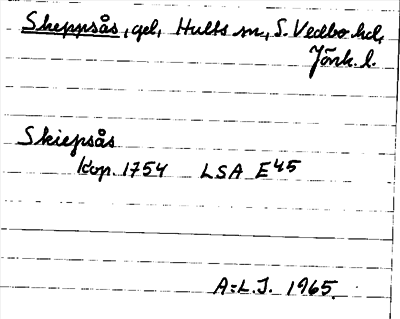 Skeppsås, gel, Hults sn, S. Vedbo hd,
Jönk. l.
Skiepsås
Kop. 1754 LSA E45
A:L.J. 1965.